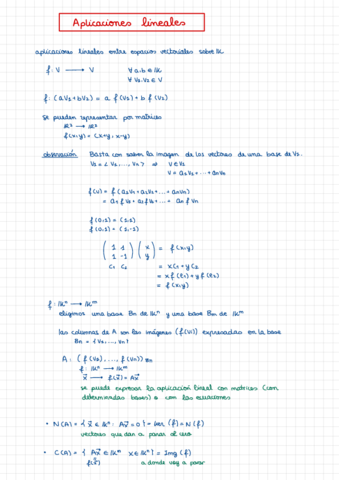 Aplicaciones lineales
aplicaciones lineales entre espacios vectoriales sobre K
f: V ⟶ V ∀ a, b ∈ K
∀ V1, V2 ∈ V
f: (aV1 + bV2) = a f(V1) + b f(V2)
se pueden representar por matrices
R² → R²
f(x,y) = (x+y, x-y)
observación Basta con saber la imagen de los vectores de una base de V1.
V1 = < V1, ..., Vn > ⇒ V ∈ V1
V = a1V1 + ... + anVn
f(V) = f(a1V1 + a2V2 + ... + anVn)
= a1 f V1 + a2 f V2 + ... = an f Vn
f(0,1) = (1,1)
f(0,1) = (1,-1)
( 1 1 ) ( x ) = f(x,y)
( 1 -1 ) ( y )
C1 C2 = x C1 + y C2
= x f(e1) + y f(e2)
= f(x,y)
f: Kⁿ ⟶ Kᵐ
elegimos una base Bn de Kⁿ y una base Bm de Kᵐ
las columnas de A son las imágenes (f(Vi)) expresadas en la base
Bn = {V1, ..., Vn}
A: (f(V1), ..., f(Vn)) Bm
f: Kⁿ ⟶ Kᵐ
x⃗ ⟶ f(x⃗) = Ax⃗
se puede expresar la aplicación lineal con matrices (con
determinadas bases) o con las ecuaciones
• N(A) = { x⃗ ∈ Kⁿ : Ax⃗ = 0 } = ker (f) = N(f)
vectores que dan a parar al cero
• C(A) = { Ax⃗ ∈ Kᵐ x ∈ Kⁿ } = Img (f)
f(x⃗) a donde voy a parar